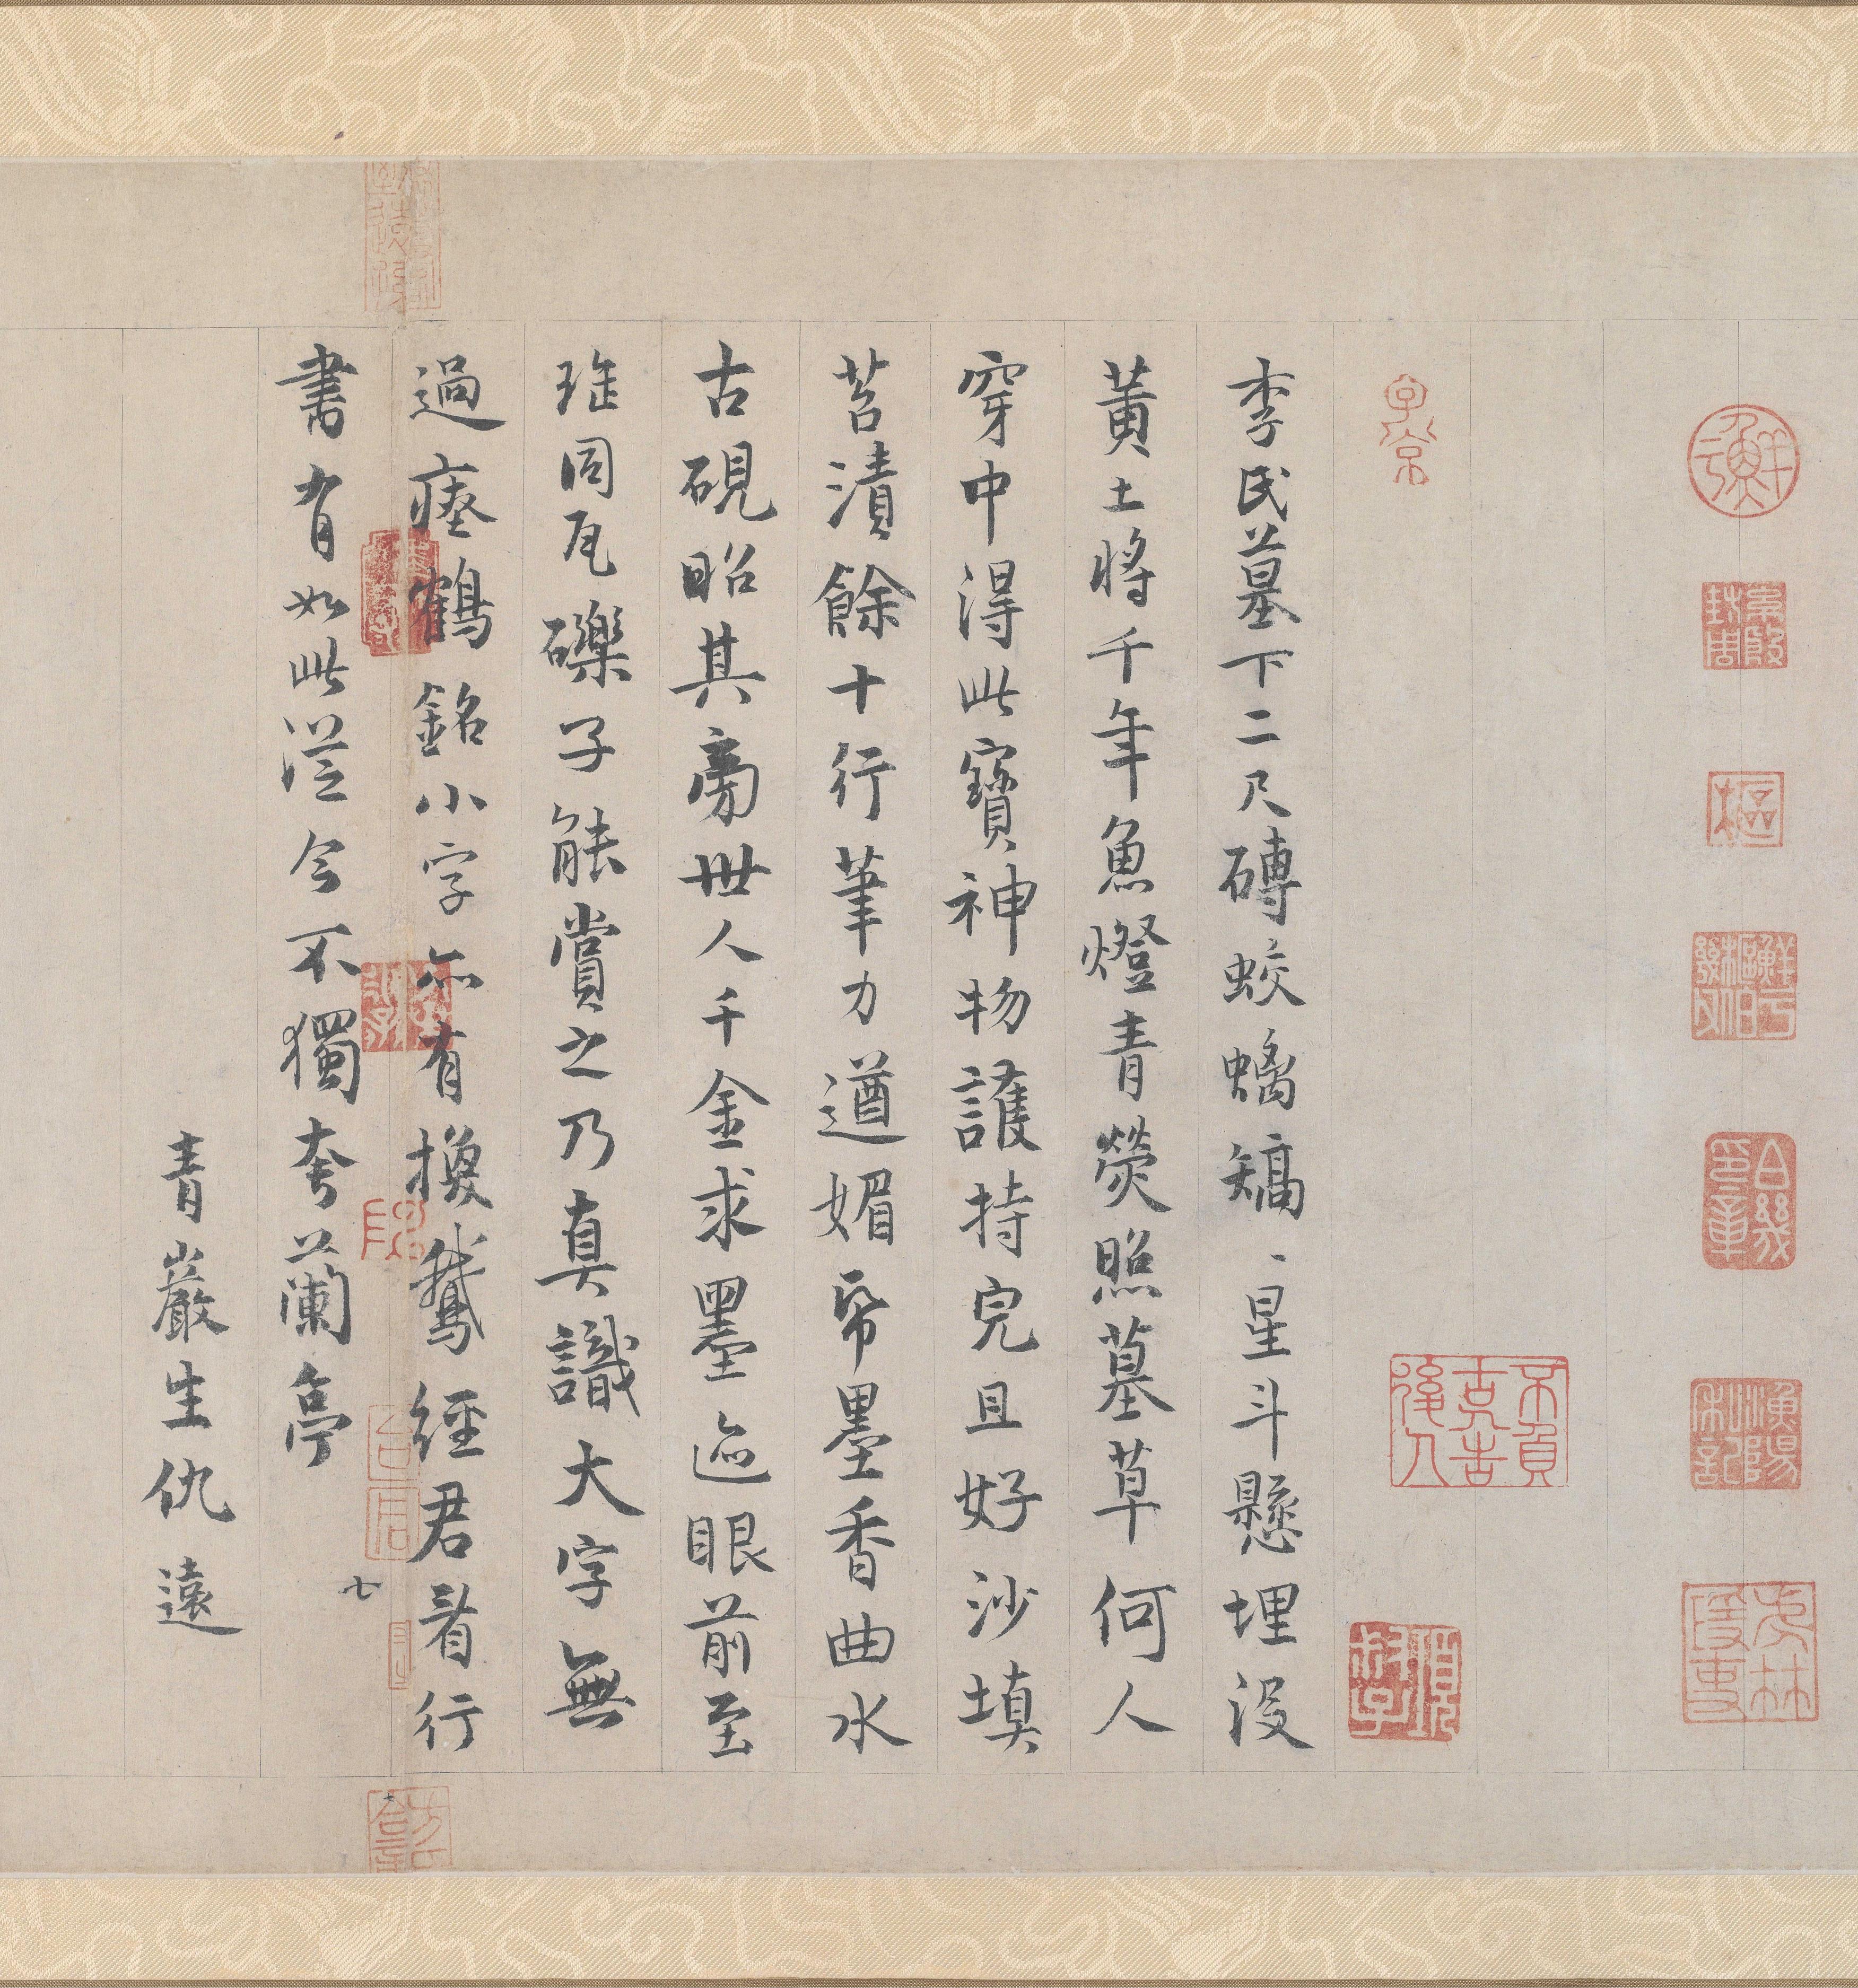 鮮
樞
鮮于樞伯幾父
子京
不負古人告後人
李氏墓下二尺磚蛟螭矯、星斗懸埋没
黄土將千年魚燈青熒照墓草何人
穿中得此寶神物護持完且好沙填
苔漬餘十行筆力遒媚帋墨香曲水
古硯昭其旁世人千金求墨迹眼前至
同瓦礫子能賞之乃真識大字無
過瘞鶴銘小字亦有換鵝經君看行
書有如此從今不獨夸蘭亭
七
青巖生仇遠